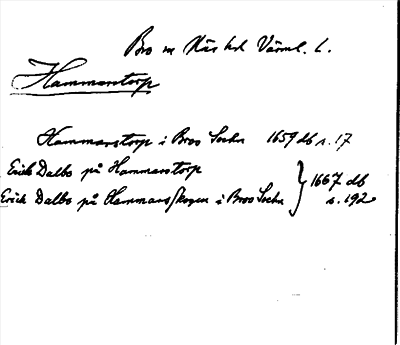 Bro sn Näs hd Värml. l.
Hammarstorp
Hammarstorp i Broo Sochn 1659 db s. 17
Erich Dalbo på Hammerstorp
Erich Dalbo på Hammarsskogen i Broo Sochn
1667 db
s. 192